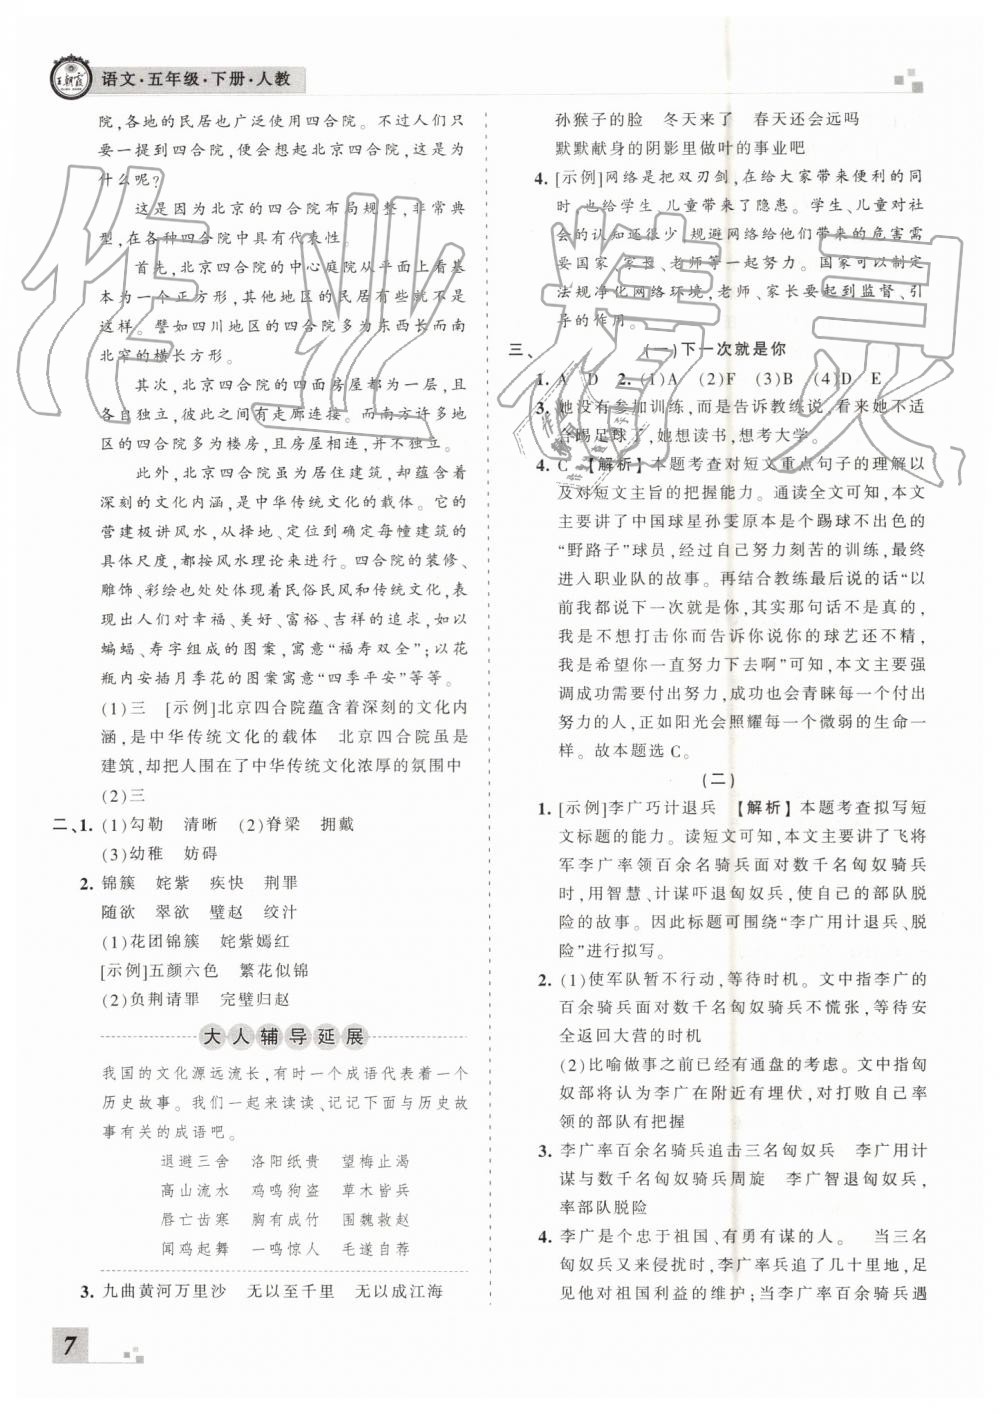 王朝霞
语文·五年级·下册·人教
院,各地的民居也广泛使用四合院。不过人们只
要一提到四合院,便会想起北京四合院,这是为
什么呢?
这是因为北京的四合院布局规整,非常典
型,在各种四合院中具有代表性。
首先,北京四合院的中心庭院从平面上看基
本为一个正方形,其他地区的民居有些就不是
这样。譬如四川地区的四合院多为东西长而南
北窄的横长方形。
其次,北京四合院的四面房屋都为一层,且
各自独立,彼此之间有走廊连接。而南方许多地
区的四合院多为楼房,且房屋相连,并不独立。
此外,北京四合院虽为居住建筑,却蕴含着
深刻的文化内涵,是中华传统文化的载体。它的
营建极讲风水,从择地、定位到确定每幢建筑的
具体尺度,都按风水理论来进行。四合院的装修、
雕饰、彩绘也处处体现着民俗民风和传统文化,表
现出人们对幸福、美好、富裕、吉祥的追求,如以
蝙蝠、寿字组成的图案,寓意“福寿双全”;以花
瓶内安插月季花的图案寓意“四季平安”等等。
(1)三 [示例]北京四合院蕴含着深刻的文化内
涵,是中华传统文化的载体 北京四合院虽是
建筑,却把人围在了中华传统文化浓厚的氛围中
(2)三
二、1. (1)勾勒 清晰 (2)脊梁 拥戴
(3)幼稚 妨碍
2. 锦簇 姹紫 疾快 荆罪
随欲 翠欲 璧赵 绞汁
(1)花团锦簇 姹紫嫣红
[示例]五颜六色 繁花似锦
(2)负荆请罪 完璧归赵
大人辅导延展
我国的文化源远流长,有时一个成语代表着一个
历史故事。我们一起来读读、记记下面与历史故
事有关的成语吧。
退避三舍 洛阳纸贵 望梅止渴
高山流水 鸡鸣狗盗 草木皆兵
唇亡齿寒 胸有成竹 围魏救赵
闻鸡起舞 一鸣惊人 毛遂自荐
3. 九曲黄河万里沙 无以至千里 无以成江海
孙猴子的脸 冬天来了 春天还会远吗
默默献身的阴影里做叶的事业吧
4. [示例]网络是把双刃剑,在给大家带来便利的同
时,也给学生、儿童带来了隐患。学生、儿童对社
会的认知还很少,规避网络给他们带来的危害需
要国家、家长、老师等一起努力。国家可以制定
法规净化网络环境,老师、家长要起到监督、引
导的作用。
三、 (一)下一次就是你
1. A D 2. (1)A (2)F (3)B (4)D E
3. 她没有参加训练,而是告诉教练说,看来她不适
合踢足球了,她想读书,想考大学。
4. C 【解析】本题考查对短文重点句子的理解以
及对短文主旨的把握能力。通读全文可知,本文
主要讲了中国球星孙雯原本是个踢球不出色的
“野路子”球员,经过自己努力刻苦的训练,最终
进入职业队的故事。再结合教练最后说的话“以
前我都说下一次就是你,其实那句话不是真的,
我是不想打击你而告诉你说你的球艺还不精,
我是希望你一直努力下去啊”可知,本文主要强
调成功需要付出努力,成功也会青睐每一个付出
努力的人,正如阳光会照耀每一个微弱的生命一
样。故本题选C。
(二)
1. [示例]李广巧计退兵 【解析】本题考查拟写短
文标题的能力。读短文可知,本文主要讲了飞将
军李广率领百余名骑兵面对数千名匈奴骑兵
时,用智慧、计谋吓退匈奴兵,使自己的部队脱
险的故事。因此标题可围绕“李广用计退兵、脱
险”进行拟写。
2. (1)使军队暂不行动,等待时机。文中指李广的
百余骑兵面对数千名匈奴骑兵不慌张,等待安
全返回大营的时机
(2)比喻做事之前已经有通盘的考虑。文中指匈
奴部将认为李广在附近有埋伏,对打败自己率
领的部队有把握
3. 李广率百余名骑兵追击三名匈奴兵 李广用计
谋与数千名匈奴骑兵周旋 李广智退匈奴兵,
率部队脱险
4. 李广是个忠于祖国、有勇有谋的人。 当三名
匈奴兵又来骚扰时,李广率兵追了几十里地,足
见他对祖国利益的维护;当李广率百余骑兵遇
7
作业精灵